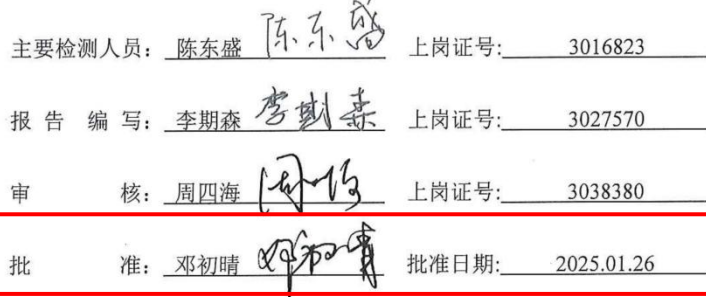 主要检测人员: 陈东盛 陈东盛 上岗证号: 3016823
报告编写: 李期森 李期森 上岗证号: 3027570
审核: 周四海 上岗证号: 3038380
批准: 邓初晴 邓初晴 批准日期: 2025.01.26